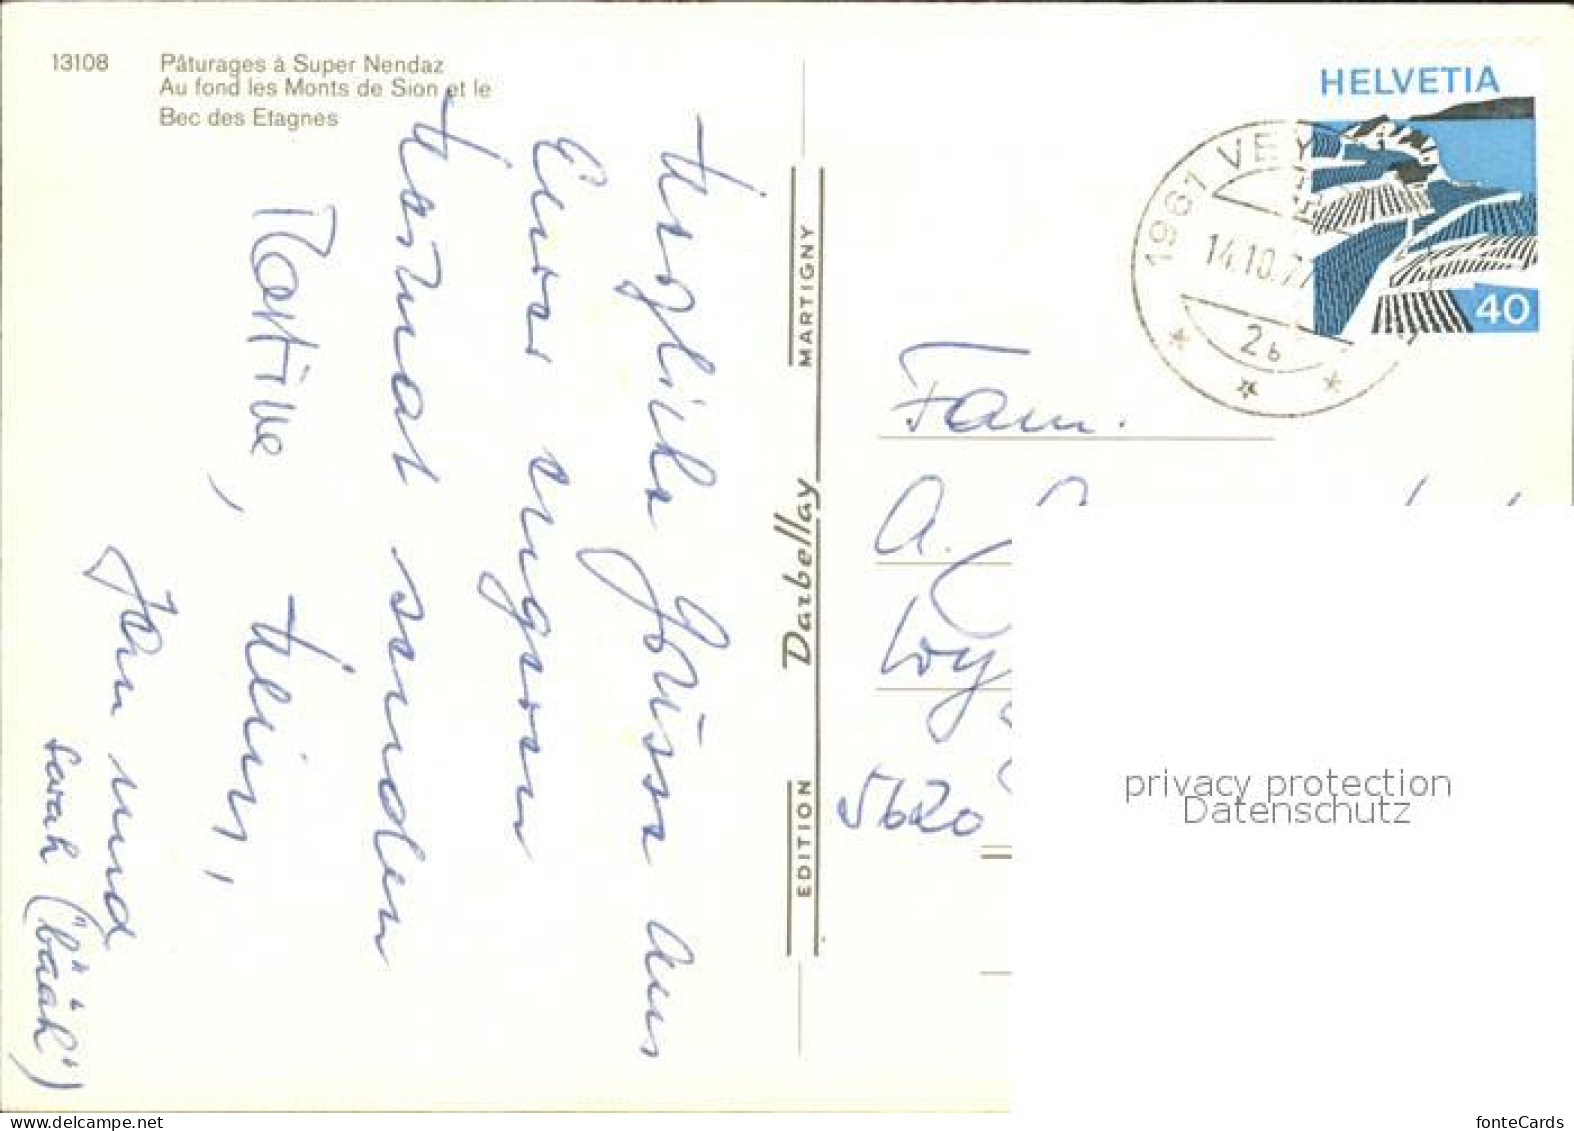 13108
Pâturages à Super Nendaz
Au fond les Monts de Sion et le
Bec des Etagnes
Herzliche Grüsse aus
Eurer engeren
Heimat senden
Martine, Heiri,
und
Sarah ("bäääh")
EDITION Darbellay MARTIGNY
HELVETIA
40
1961 VEY
14.10.77
2b
Fam.
A.
5620
privacy protection
Datenschutz
www.delcampe.net
fonteCards